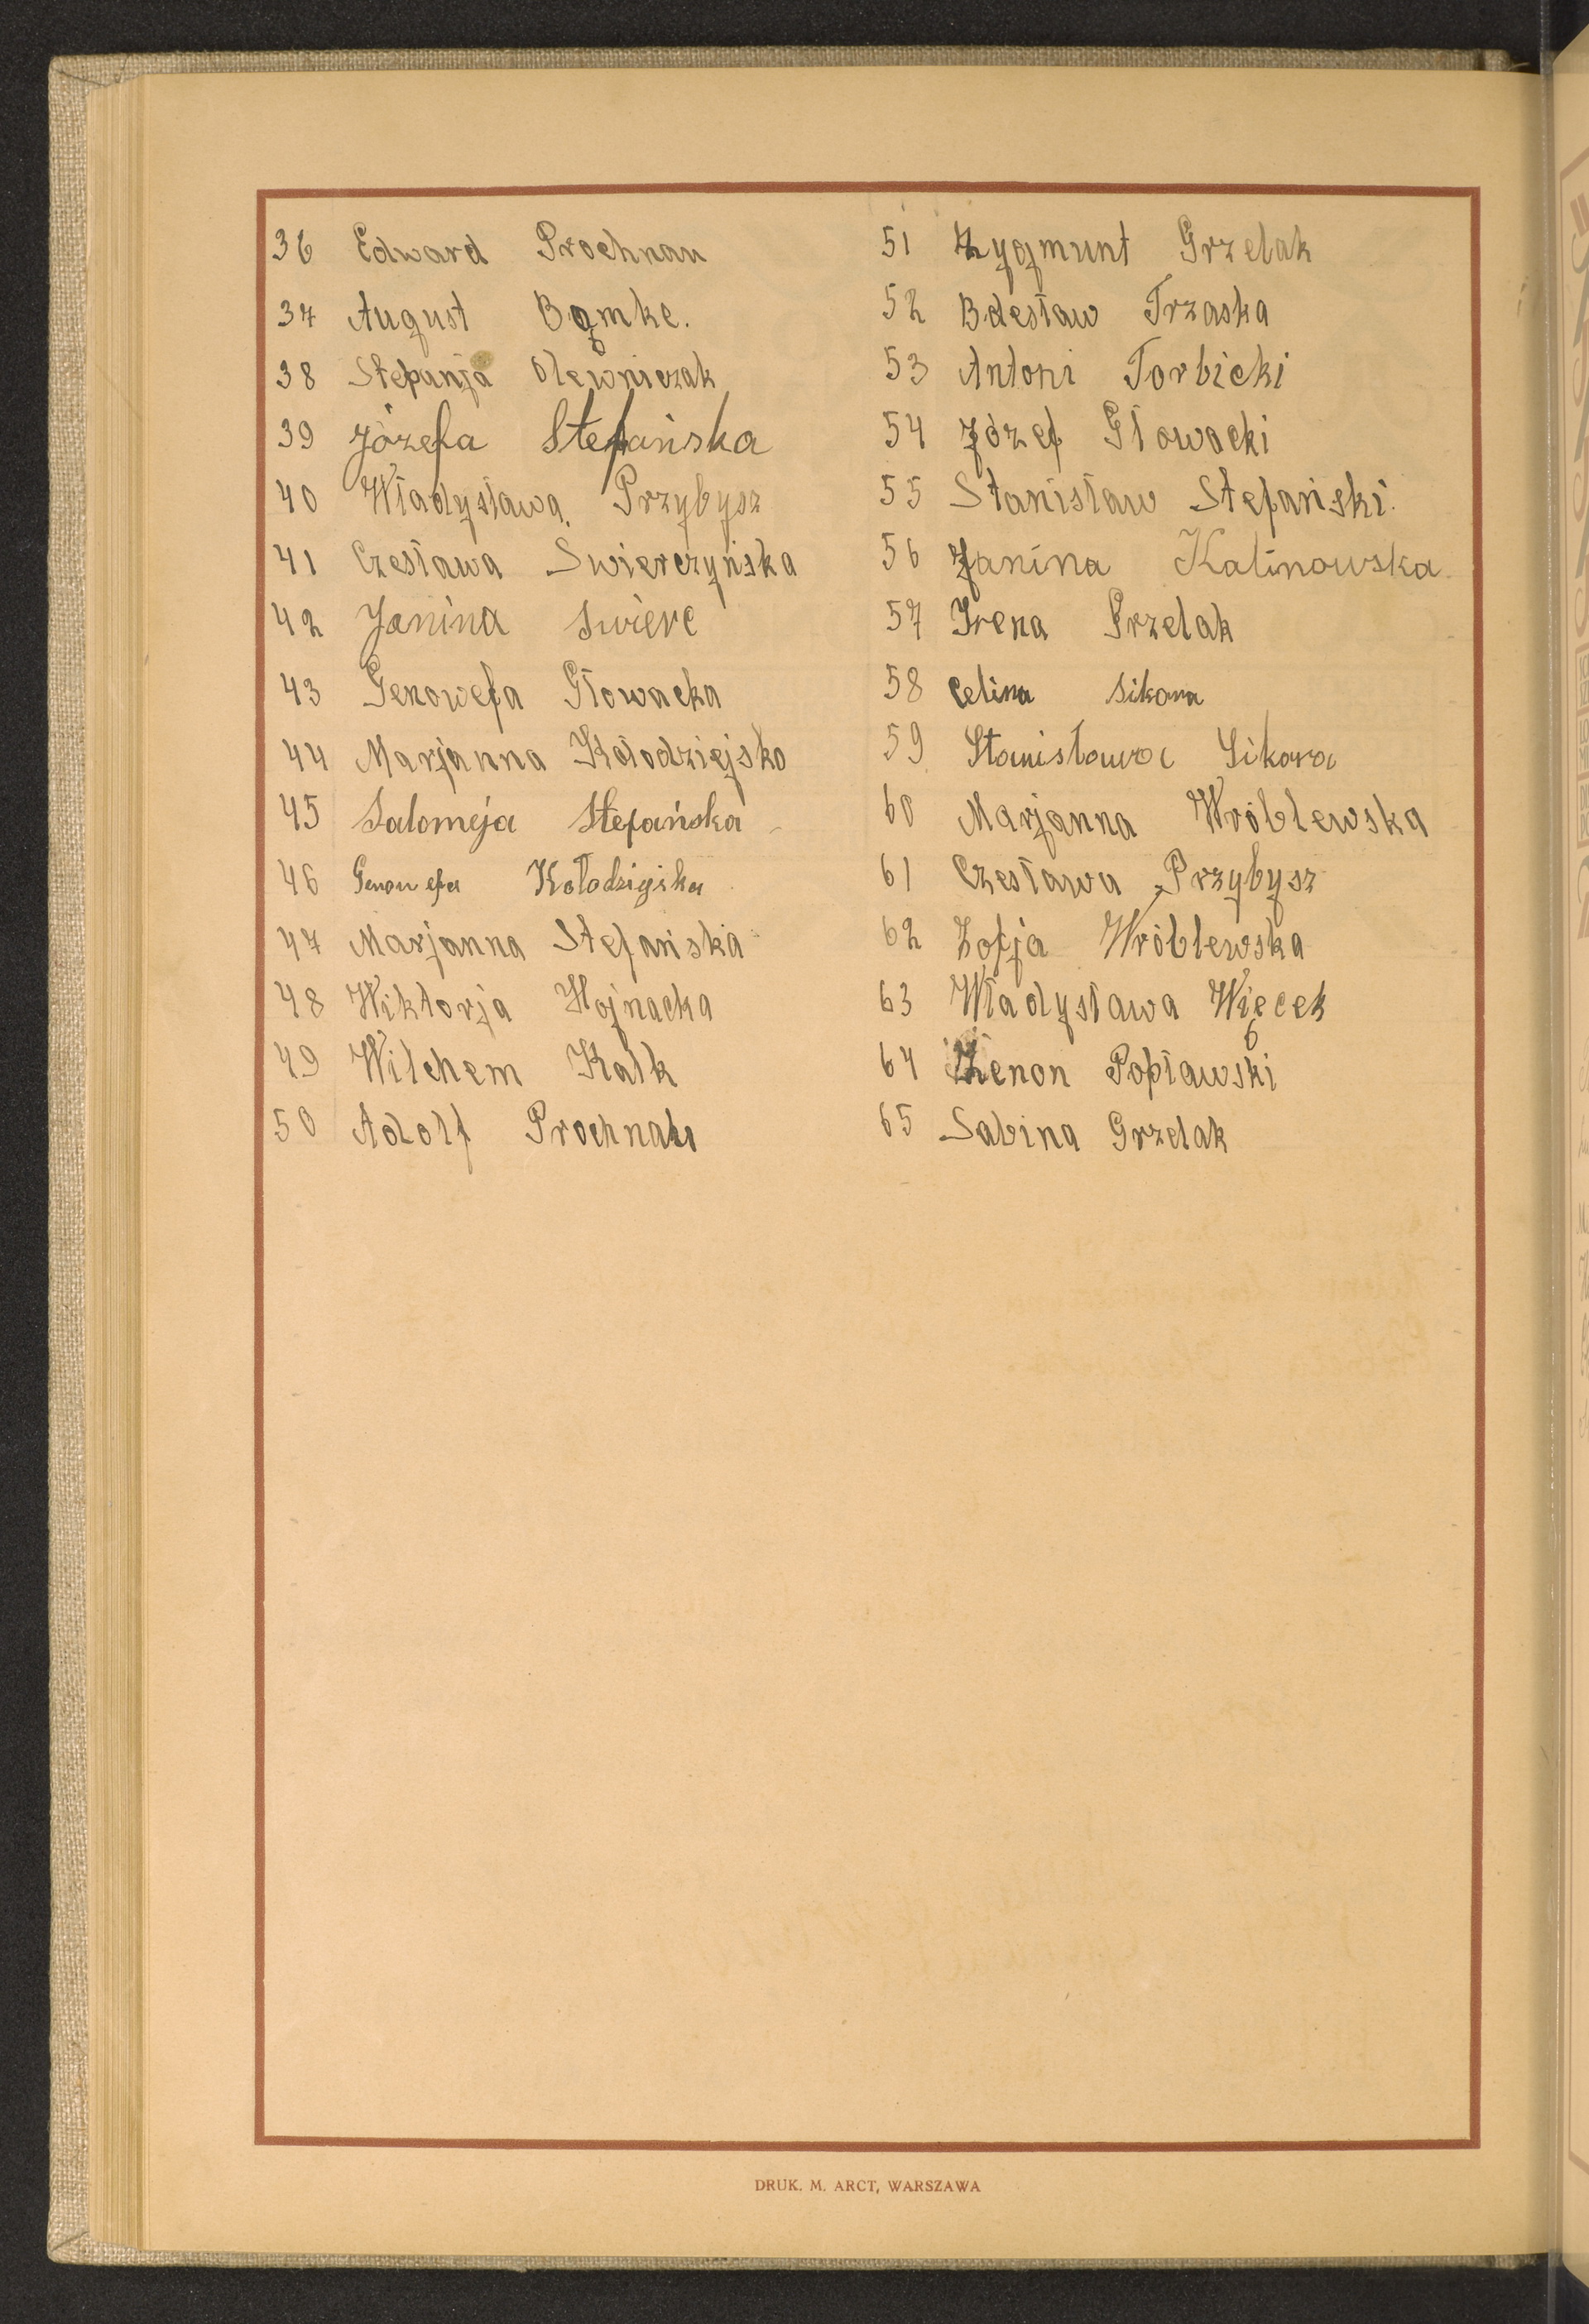 36 Edward Prochnau
37 August Bąmke.
38 Stefanja Olewniczak
39 Józefa Stefańska
40 Władysława Przybysz
41 Czesława Swierczyńska
42 Janina Swierc
43 Genowefa Głowacka
44 Marjanna Kołodziejska
45 Salomeja Stefańska
46 Genowefa Kołodziejska
47 Marjanna Stefańska
48 Wiktorja Hojnacka
49 Wilchem Kalk
50 Adolf Prochnau
51 Zygmunt Grzelak
52 Bolesław Trzaska
53 Antoni Torbicki
54 Józef Głowacki
55 Stanisław Stefański.
56 Janina Kalinowska
57 Irena Grzelak
58 Celina Sikora
59 Stanisława Sikora
60 Marjanna Wróblewska
61 Czesława Przybysz
62 Zofja Wróblewska
63 Władysława Więcek
64 Zenon Popławski
65 Sabina Grzelak
DRUK. M. ARCT, WARSZAWA